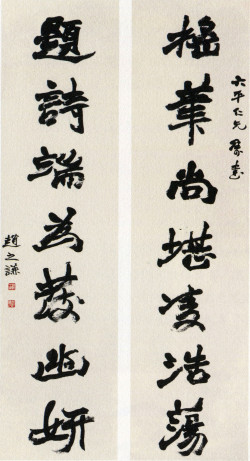 搖筆尚堪凌浩蕩
六平仁兄屬
題詩端為發幽妍
趙之謙